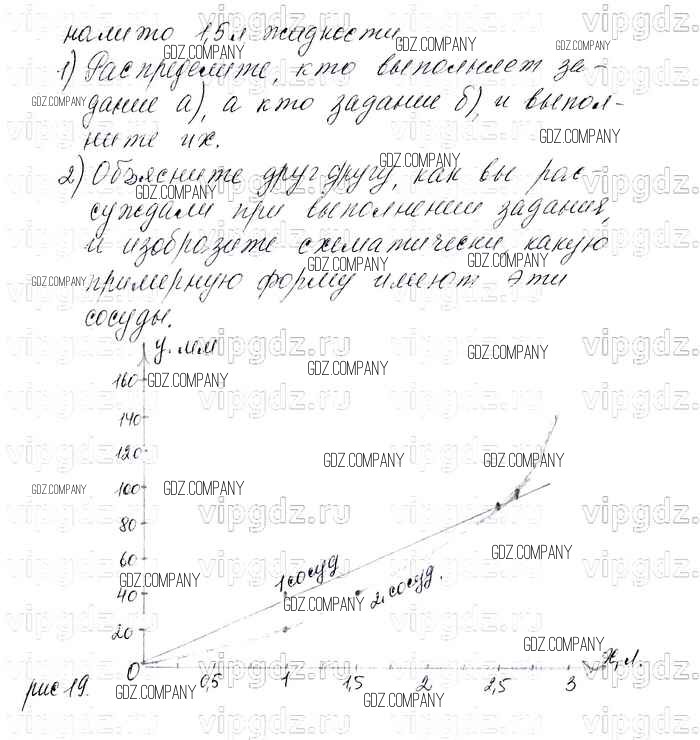 налито 1,5 л жидкости.
1) Распределите, кто выполняет за-
дание а), а кто задание б), и выпол-
ните их.
2) Объясните друг другу, как вы рас-
суждали при выполнении задания,
и изобразите схематически, какую
примерную форму имеют эти
сосуды.
y, мм
160
140
120
100
80
60
40
20
0
1 сосуд
2 сосуд.
0,5 1 1,5 2 2,5 3
x, л.
рис 19.
GDZ.COMPANY
vipgdz.ru